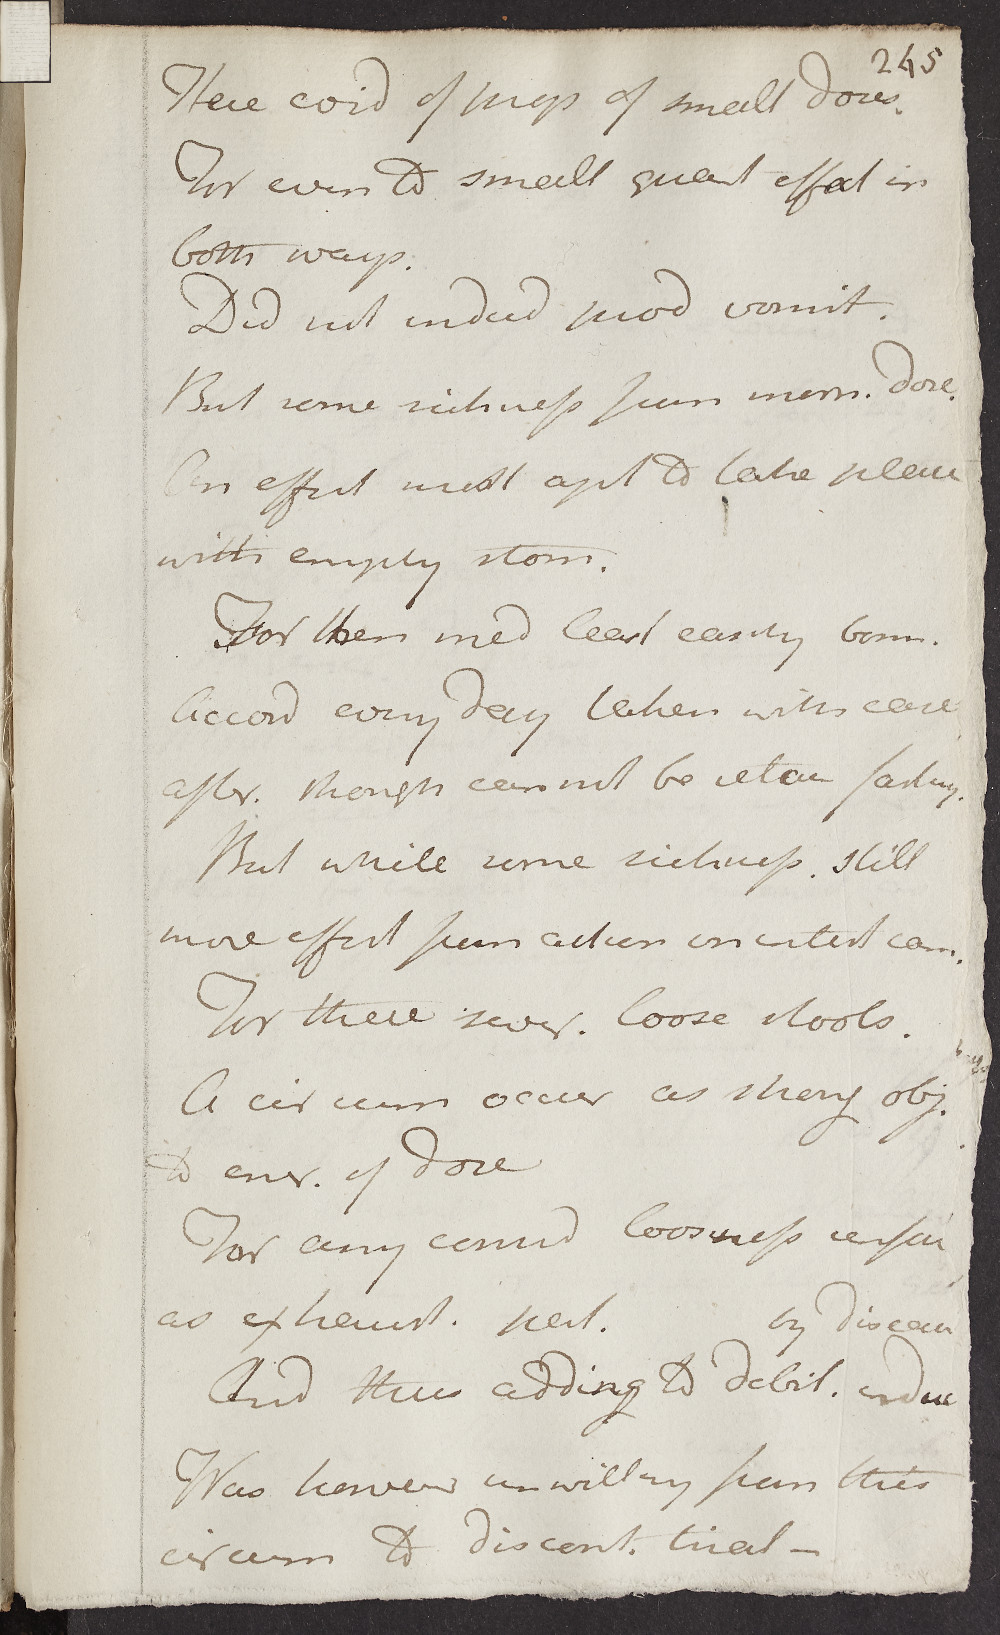 245
Here avoid of prop of small doses.
For even to small quant effect in
both ways.
Did not indeed prod vomit.
But some sickness from morn. dose.
An effect most apt to take place
with empty stom.
For then med least easily born.
Accord every day taken with ease
after. though cannot be retain fasting.
But while some sickness. still
more effect from action on intest can.
For there sever. loose stools.
A circum occur as strong obj.
to encr. of dose
For any consid loosness
as exhaust. pat. by disease
And thus adding to debil. induc
Was however unwilling from this
circum to discont. trial—